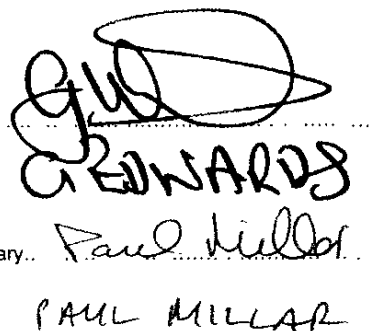 G EDWARDS
ary.. Paul Millar
PAUL MILLAR